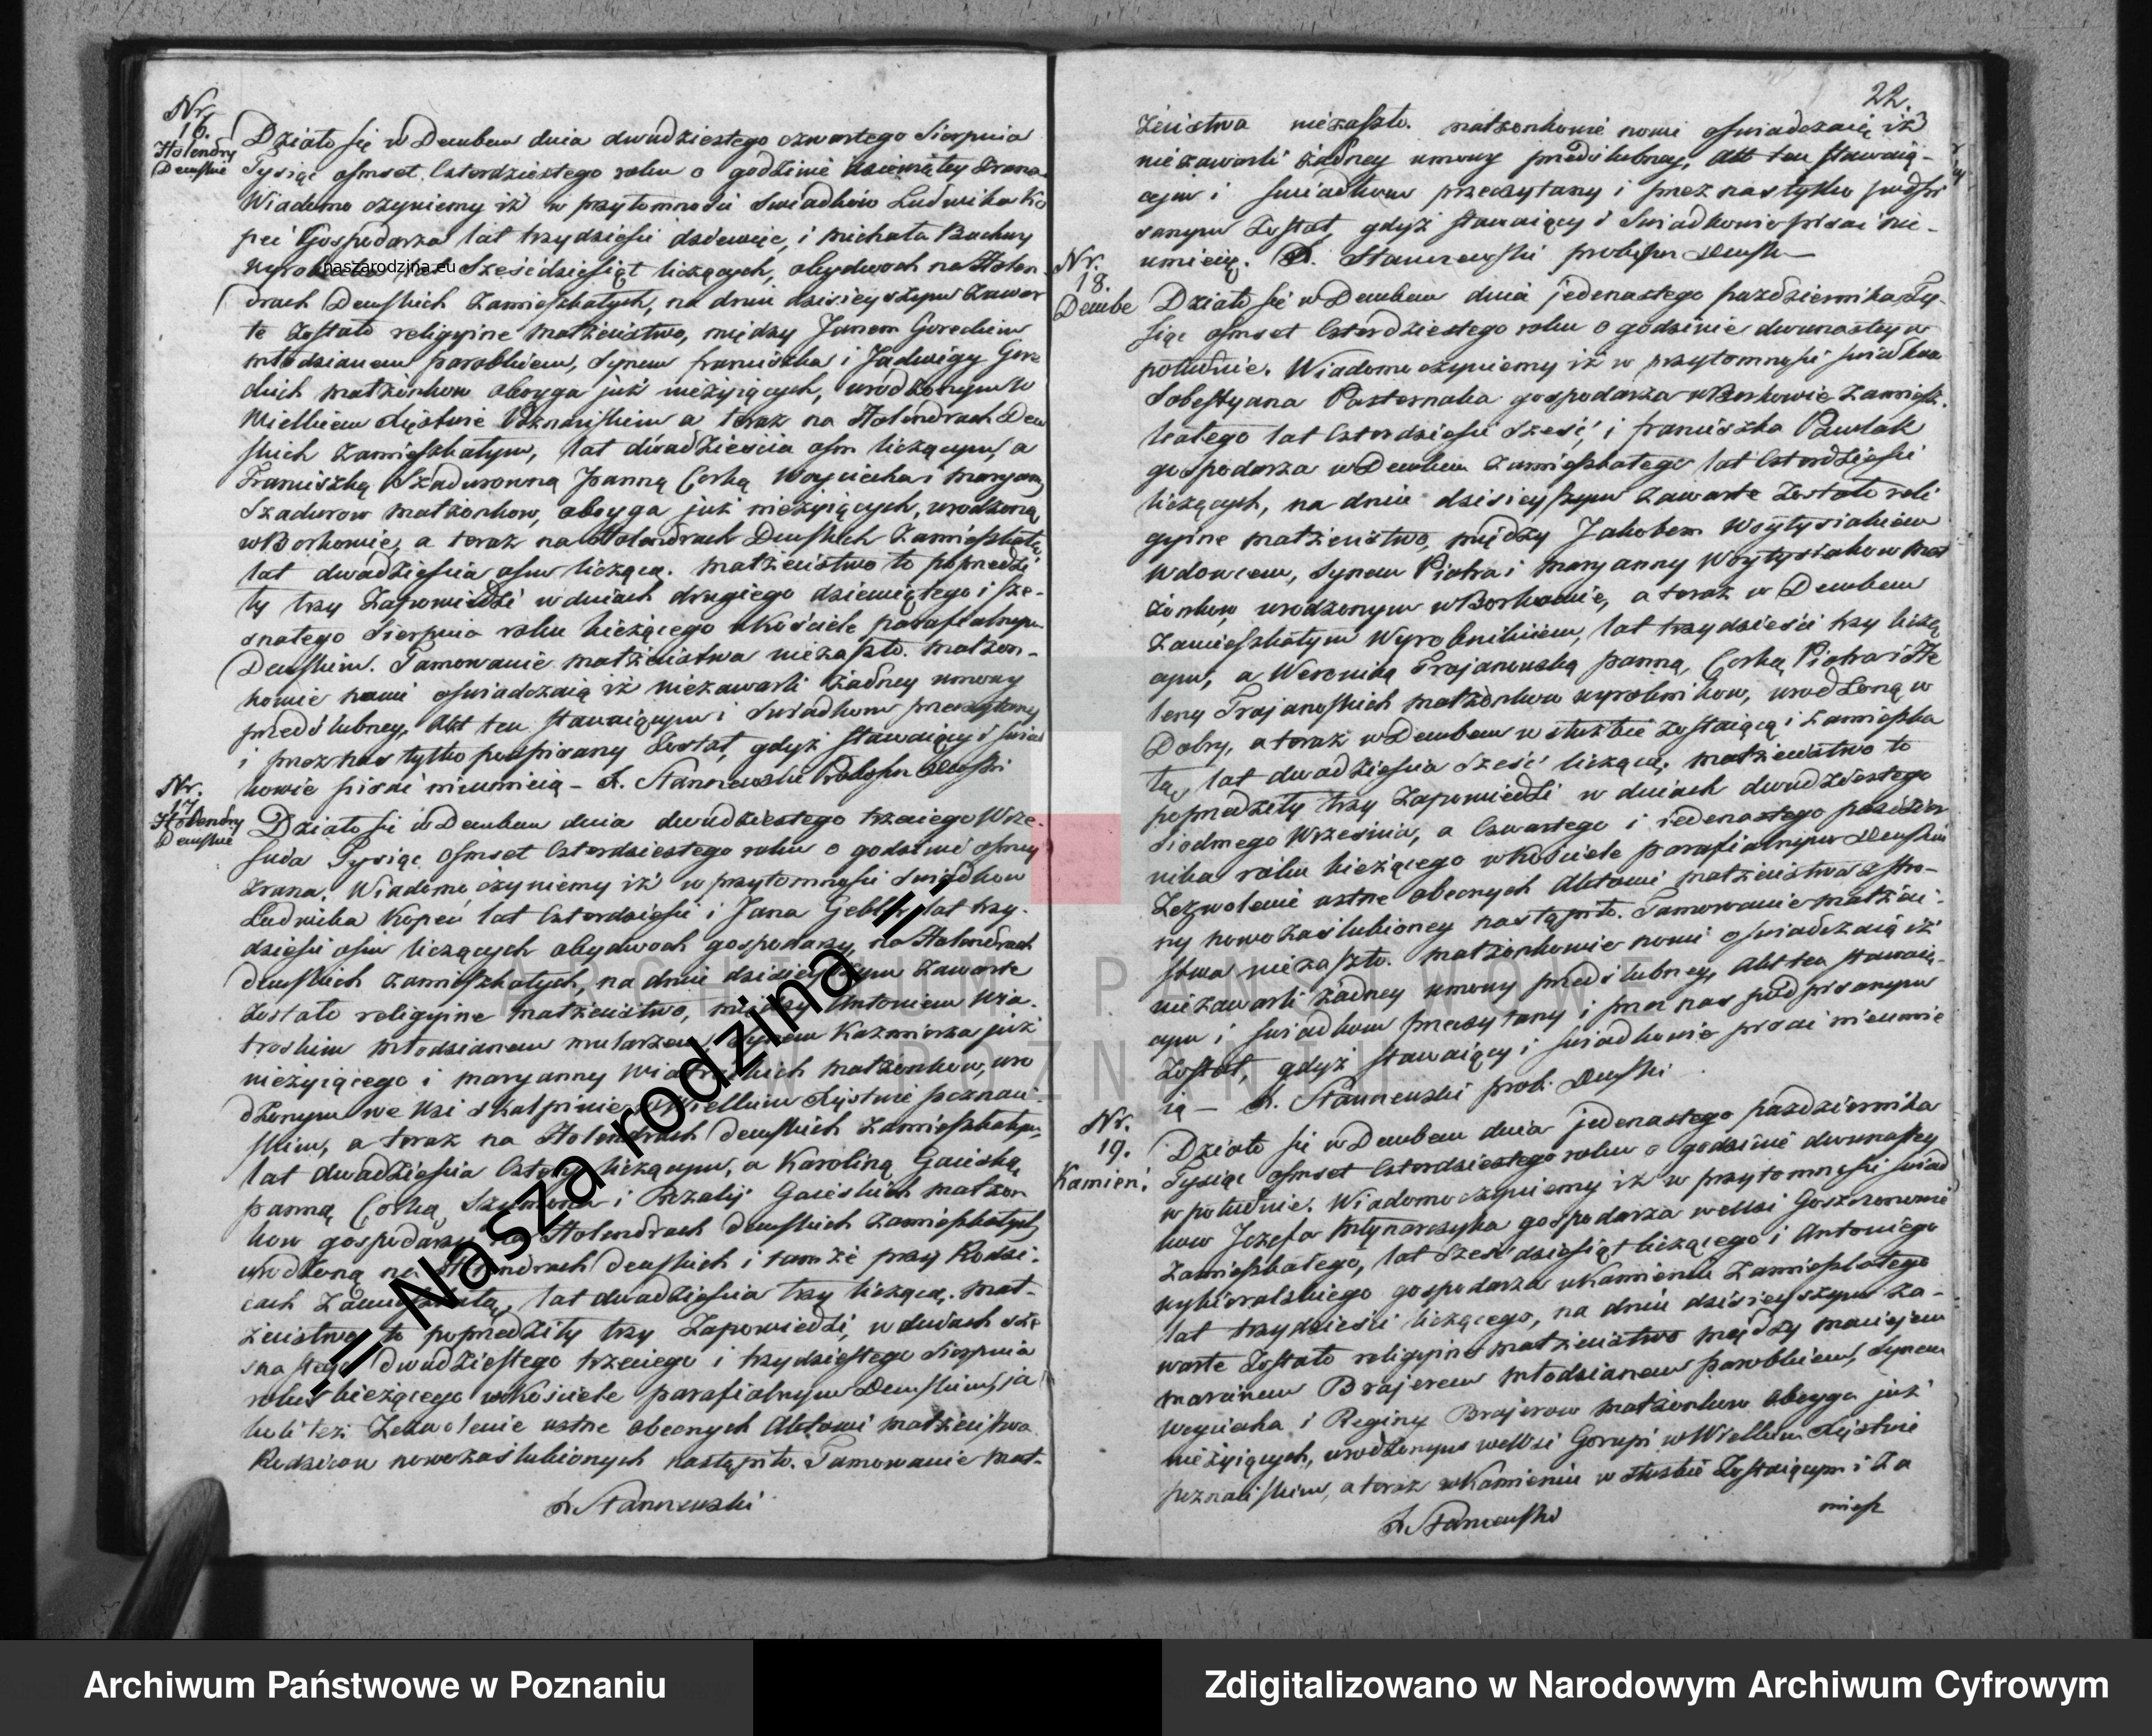 Nr.
16.
Holendry
Demskie
Działo się w Dembem dnia dwudziestego czwartego Sierpnia
Tysiąc osmset czterdziestego roku o godzinie dziewiątey zrana
Wiadomo czyniemy iż w przytomności Swiadków Ludwika Ko
peć Gospodarza lat trzydzieści dziewięć, i Michała Bachury
lat Sześćdziesiąt liczących, obydwoch na Holen-
drach Demskich Zamieszkałych, na dniu dzisieyszym Zawar
te Zostało religyine Małżeństwo, między Janem Goreckim
młodzianem parobkiem, Synem franciszka i Jadwigy Gore
ckich małżonkow oboyga już nieżyiących, urodzonym w
Wielkiem Xięstwie Poznańskiem a teraz na Holendrach Dem
skich Zamieszkałym, lat dwadzieścia osm liczącym, a
Franciszką Szadurowną Panną Corką Woyciecha i Maryany
Szadurow małżonkow, oboyga już nieżyiących, urodzoną
w Borkowie, a teraz na Holendrach Demskich Zamieszkałą,
lat dwadzieścia osm liczącą. Małżeństwo to poprzedzi
ły trzy Zapowiedzi w dniach drugiego dziewiątego i sze-
snastego Sierpnia roku bieżącego w Kościele parafialnym
Demskim. Tamowanie małżeństwa niezaszło. Małżon-
kowie nowi oświadczaią iż niezawarli żadney umowy
przedślubney, Akt ten stawaiącym i Swiadkom przeczytany
i przez nas tylko podpisany Został, gdyż stawaiący i świad
kowie pisać nieumieią - Stanrewski Proboszcz Demski
Nr.
17
Holendry
Demskie
Działo się w Dembem dnia dwudziestego trzeciego Wrze-
śnia Tysiąc osmset czterdziestego roku o godzinie osmey
zrana. Wiadomo czyniemy iż w przytomności Swiadkow
Ludwika Kopeć lat czterdzieści i Jana Gebler lat trzy-
dzieści osm liczących obydwoch gospodarzy na Holendrach
demskich Zamieszkałych, na dniu dzisieyszym Zawarte
Zostało religyine małżeństwo, między Antonim Wia-
troskim młodzianem mularzem, Synem Kazmierza już
nieżyiącego i maryanny Wiatroskich małżonkow, uro
dzonym we Wsi Skalpinie w Wielkim Xięstwie poznań-
skim, a teraz na Holendrach demskich Zamieszkałym,
lat dwadzieścia liczącym, a Karoliną Gaieską
panną Corką Szymona i Rozalij Gaieskich małżon
kow gospodarzy na Holendrach demskich Zamieszkałych,
urodzoną na Holendrach demskich i tamże przy Rodzi-
cach Zamieszkałą, lat dwadzieścia trzy liczącą. Mał-
żeństwo to poprzedziły trzy Zapowiedzi, w dniach sze
snastego dwudziestego trzeciego i trzydziestego Sierpnia
roku bieżącego w Kościele parafialnym Demskim, ja
koli też Zezwolenie ustne obecnych Aktowi małżeństwa
Rodzicow nowozaślubionych nastąpiło. Tamowanie mał-
Stanrewski
22.
żeństwa niezaszło. małżonkowie nowi oświadczaią iż
niezawarli żadney umowy przedślubney, Akt ten stawaią-
cym i świadkom przeczytany i przez nas tylko podpi
sanym Został, gdyż stawaiący i Swiadkowie pisać nie-
umieią. Stanrewski proboszcz Demski
Nr.
18.
Dembe
Działo się w Dembem dnia jedenastego pazdziernika Ty-
siąc osmset czterdziestego roku o godzinie dwunastey w
południe. Wiadomo czyniemy iż w przytomności świadkow
Sobestyana Pasternaka gospodarza w Borkowie Zamiesz-
kałego lat czterdzieści Sześć, i franciszka Pawlak
gospodarza w Dembem Zamieszkałego lat czterdzieści
liczących, na dniu dzisieyszym Zawarte Zostało reli
gyine małżeństwo, między Jakobem Woytysiakiem
Wdowcem, Synem Piotra i Maryanny Woytysiakow mał
żonkow, urodzonym w Borkowie, a teraz w Dembem
Zamieszkałym Wyrobnikiem, lat trzydzieści trzy liczą
cym, a Weroniką Trajanowską panną, Corką Piotra i He
leny Trajanoskich małżonkow wyrobnikow, urodzoną w
Dobry, a teraz w Dembem w służbie Zostaiącą i Zamieszka
łą, lat dwadzieścia Sześć liczącą, małżeństwo to
poprzedziły trzy Zapowiedzi w dniach dwudziestego
Siodmego Września, a czwartego i jedenastego pazdzier
nika roku bieżącego w Kościele parafialnym Demskim
Zezwolenie ustne obecnych Aktowi małżeństwa
ny nowozaślubioney nastąpiło. Tamowanie małżeń-
stwa niezaszło. małżonkowie nowi oświadczaią iż
niezawarli żadney umowy przedślubney, Akt ten stawaią-
cym i świadkom przeczytany i przez nas podpisanym
Został, gdyż stawaiący i świadkowie pisać nieumie
ią - Stanrewski prob. Demski
Nr.
19.
Kamień.
Działo się w Dembem dnia jedenastego pazdziernika
Tysiąc osmset czterdziestego roku o godzinie dwunastey
w południe. Wiadomo czyniemy iż w przytomności świad
kow Jozefa Młynarczyka gospodarza we Wsi Goszczonowie
Zamieszkałego, lat Sześćdziesiąt liczącego i Antoniego
Wybieralskiego gospodarza w Kamieniu Zamieszkałego
lat trzydzieści liczącego, na dniu dzisieyszym Za-
warte Zostało religyine małżeństwo między Maciejem
Marcinem Brajerem młodzianem parobkiem, Synem
Woyciecha i Reginy Brajerow małżonkow oboyga już
nieżyiących, urodzonym we Wsi Gorupi w Wielkim Xięstwie
poznańskim, a teraz w Kamieniu w służbie Zostaiącym i Za
miesz
Stanrewski
naszarodzina.eu
-= Nasza rodzina =-
ARCHIWUM PAŃSTWOWE
W POZNANIU
Archiwum Państwowe w Poznaniu
Zdigitalizowano w Narodowym Archiwum Cyfrowym